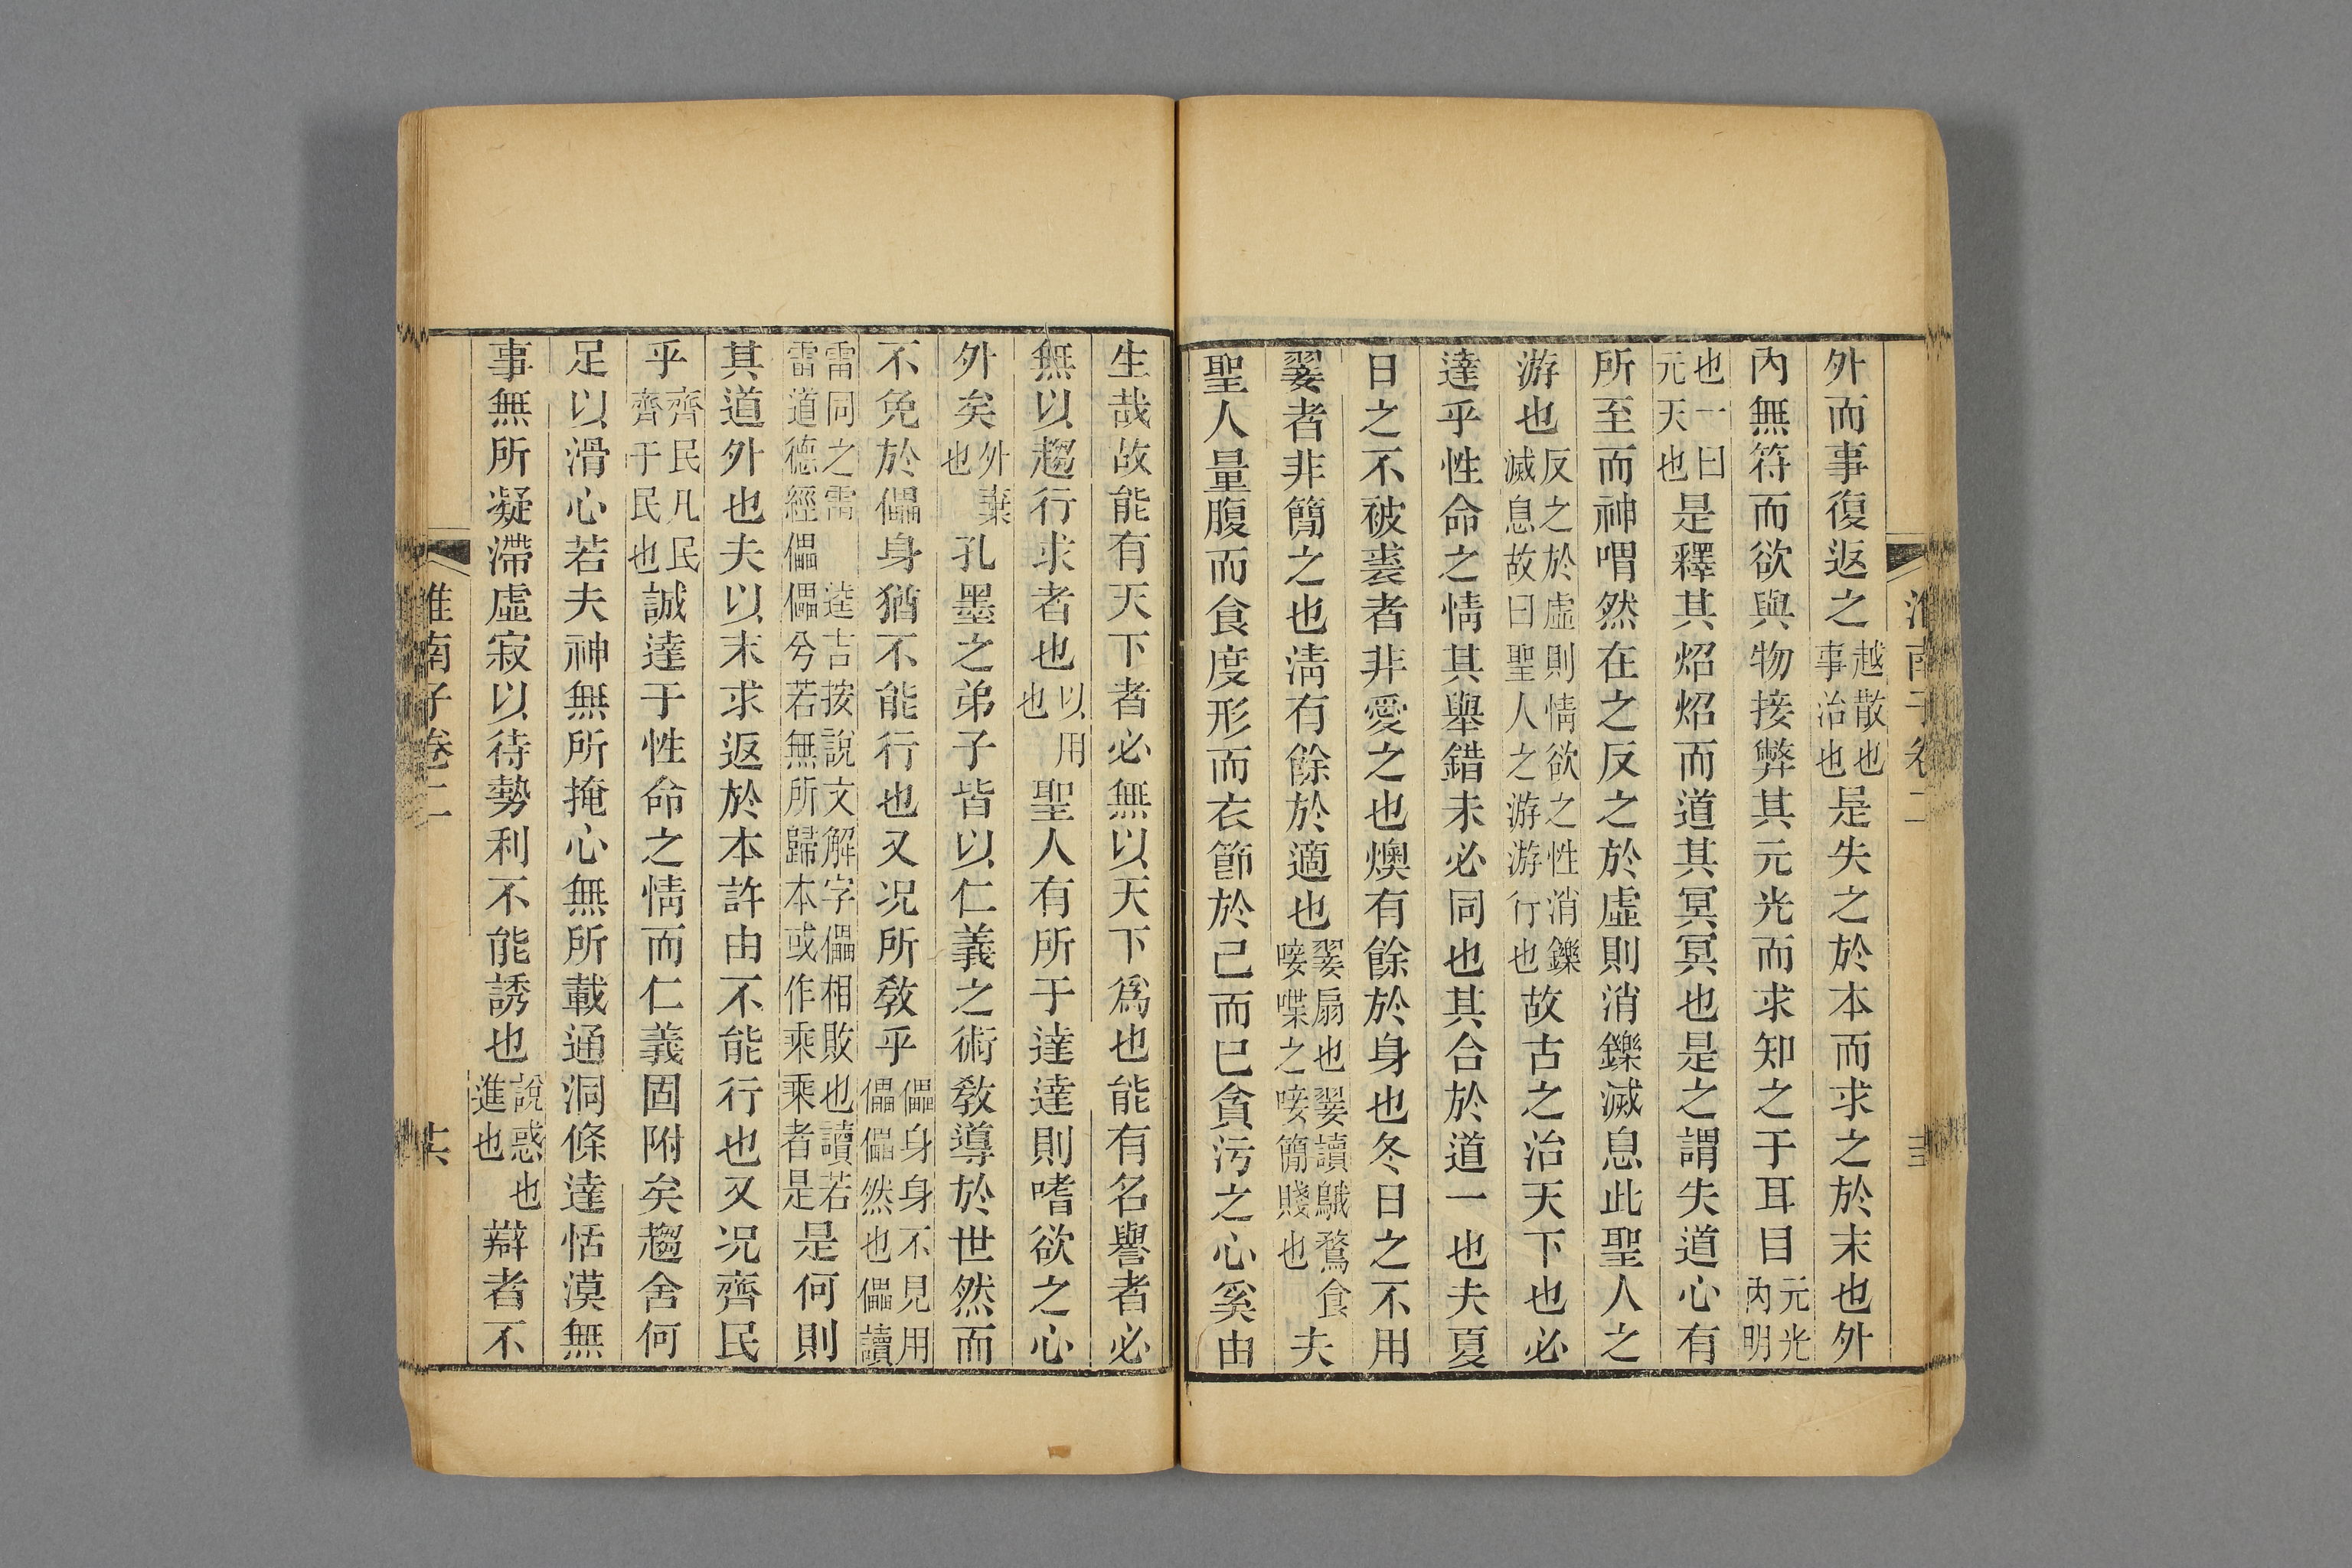 淮南子卷二
外而事復返之越散也事治也是失之於本而求之於末也外
內無符而欲與物接弊其元光而求知之于耳目元光內明
也一曰元天也是釋其炤炤而道其冥冥也是之謂失道心有
所至而神喟然在之反之於虛則消鑠滅息此聖人之
游也反之於虛則情欲之性消鑠滅息故曰聖人之游游行也故古之治天下也必
達乎性命之情其舉錯未必同也其合於道一也夫夏
日之不被裘者非愛之也燠有餘於身也冬日之不用
翣者非簡之也淸有餘於適也翣扇也翣讀鵝鶩食唼喋之唼簡賤也夫
聖人量腹而食度形而衣節於己而已貪污之心奚由
生哉故能有天下者必無以天下爲也能有名譽者必
無以趨行求者也以用也聖人有所于達達則嗜欲之心
外矣外棄也孔墨之弟子皆以仁義之術敎導於世然而
不免於儡身猶不能行也又况所敎乎儡身身不見用儡儡然也儡讀
雷同之雷逵吉按說文解字儡相敗也讀若雷道德經儡儡兮若無所歸本或作乘乘者是是何則
其道外也夫以末求返於本許由不能行也又况齊民
乎齊民凡民齊于民也誠達于性命之情而仁義固附矣趨舍何
足以滑心若夫神無所掩心無所載通洞條達恬漠無
事無所凝滯虛寂以待勢利不能誘也說惑也進也辯者不
淮南子卷二 十六